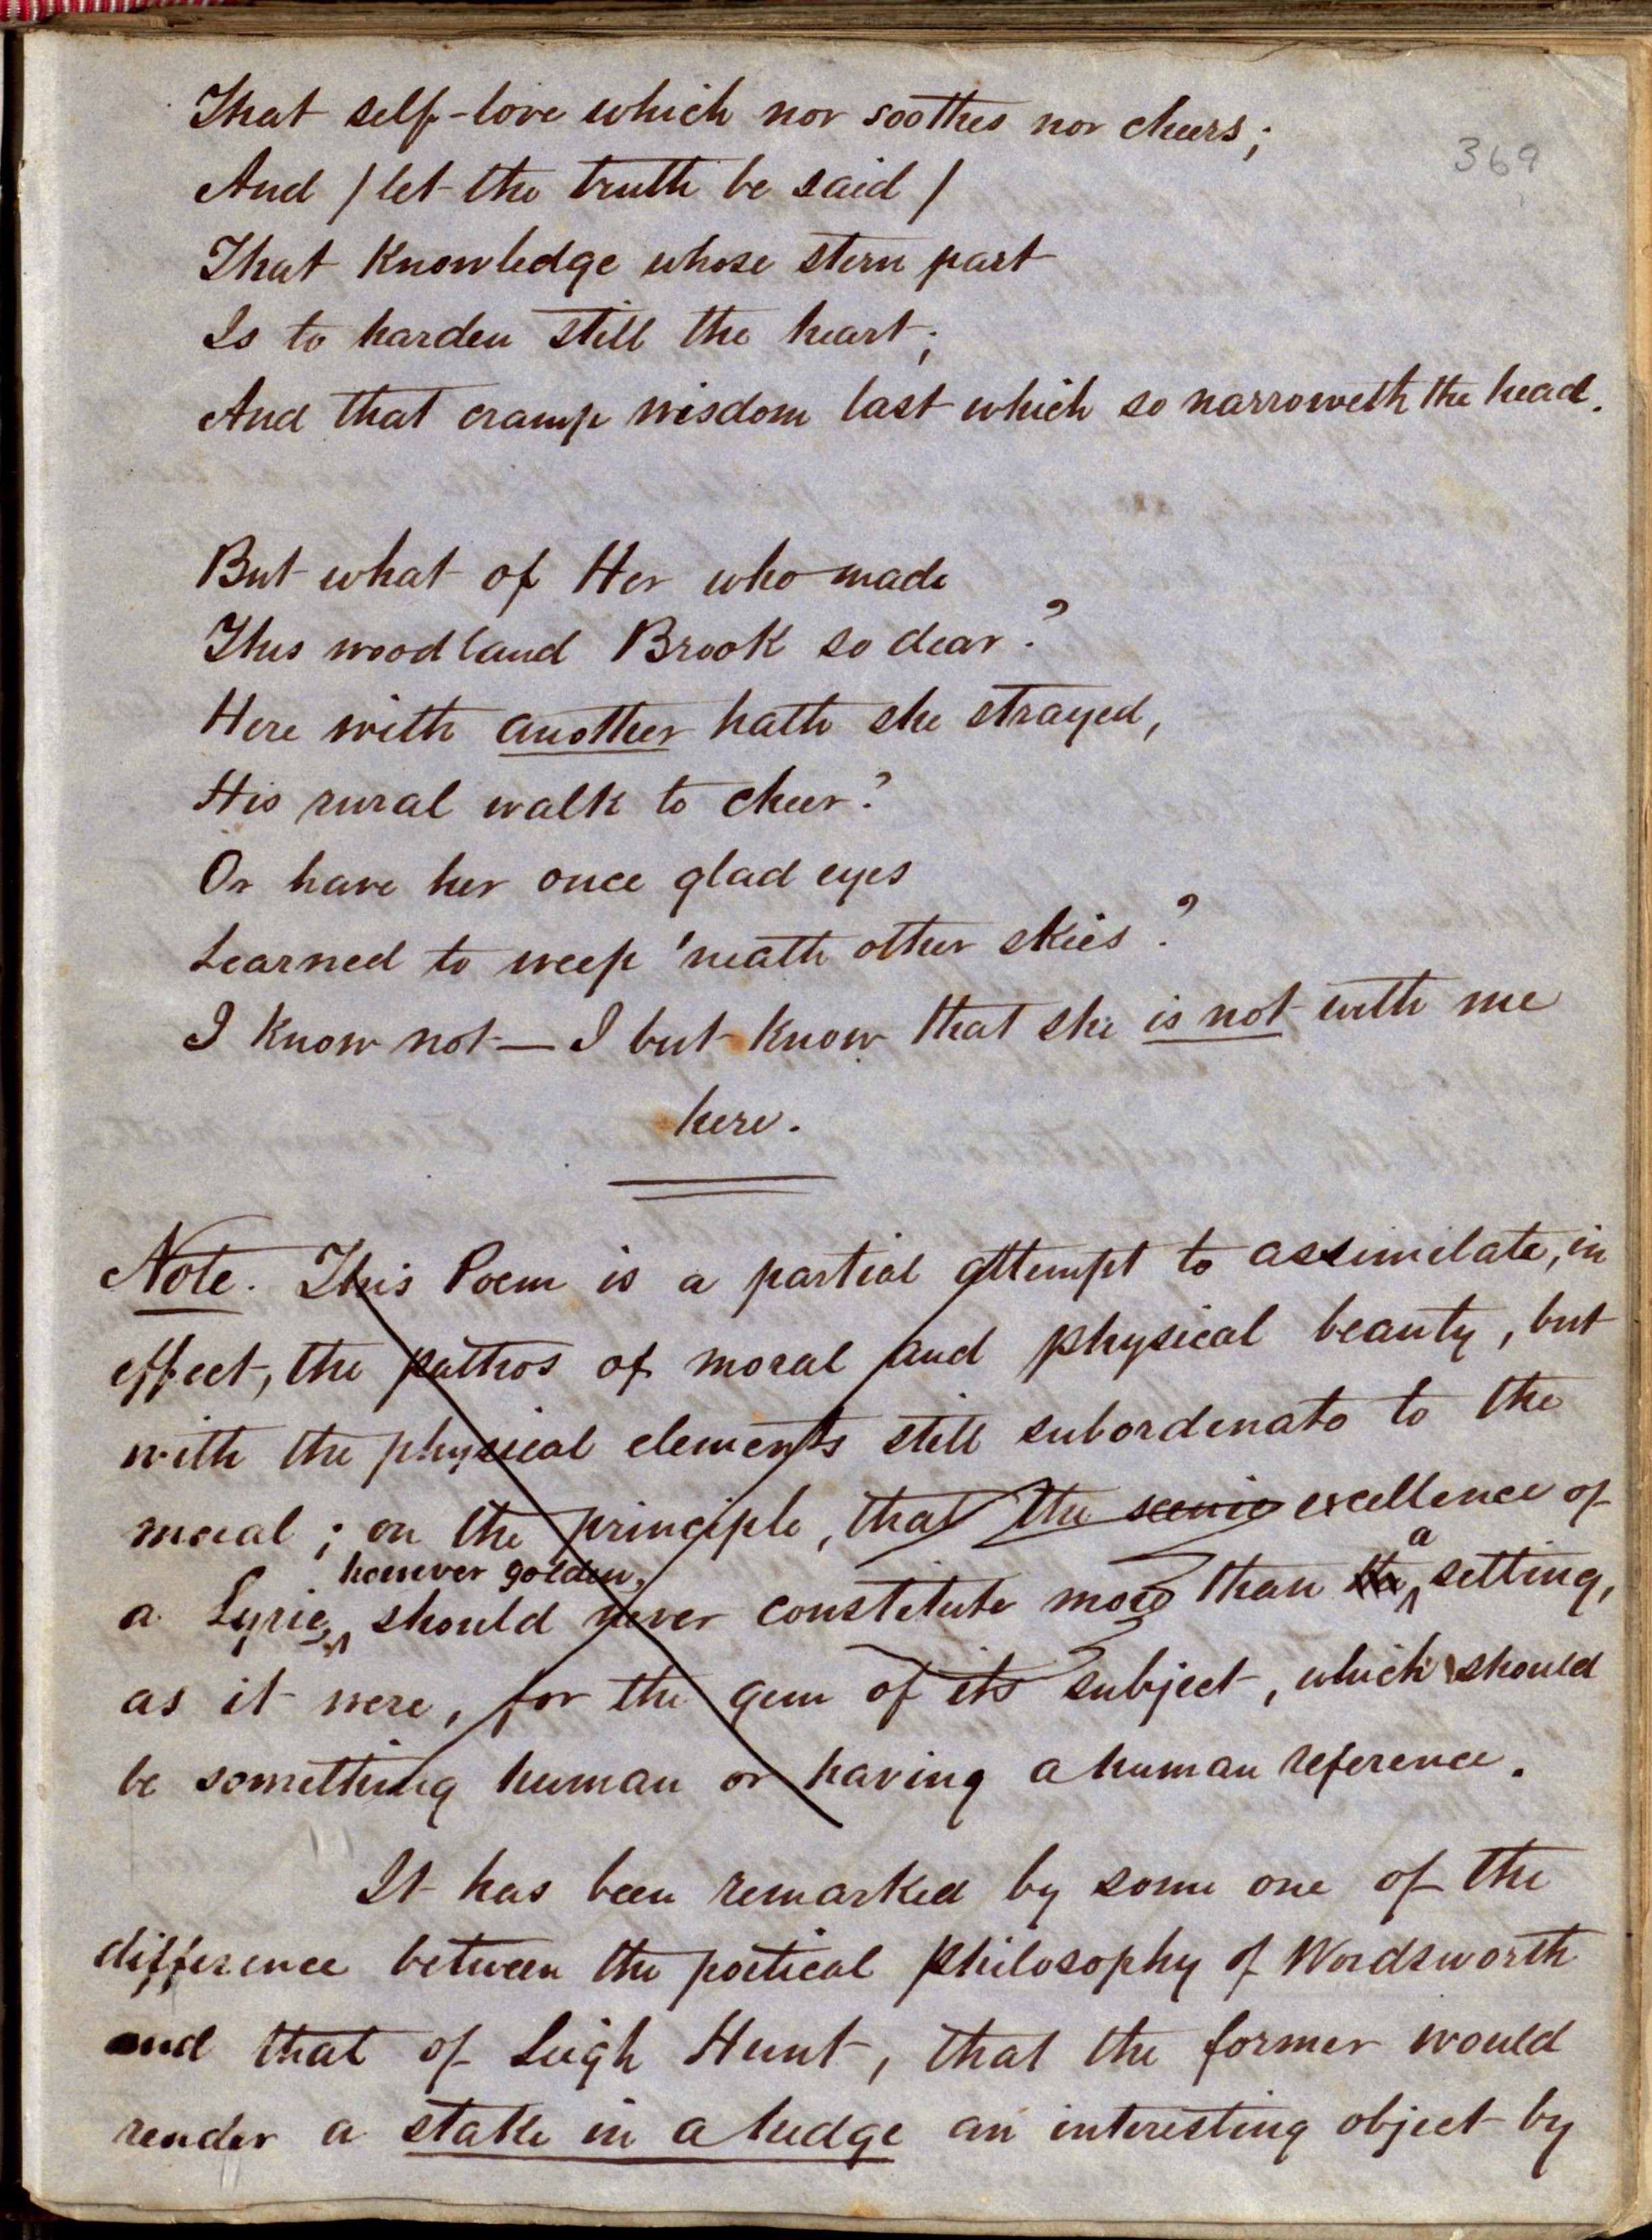 369
That self-love which nor soothes nor cheers;
And / let the truth be said /
That Knowledge whose stern part
Is to harden still the heart;
And that cramp wisdom last which so narroweth the head.
But what of Her who made
This woodland Brook so dear?
Here with another hath she strayed,
His rural walk to cheer?
Or have her once glad eyes
Learned to weep 'neath other skies?
I know not — I but know that she is not with me
here.
Note. This Poem is a partial attempt to assimilate, in
effect, the pathos of moral and physical beauty, but
with the physical elements still subordinate to the
moral; on the principle, that the scenic excellence of
a Lyric, however golden, should never constitute more than a setting,
as it were, for the gem of its subject, which should
be something human or having a human reference.
It has been remarked by some one of the
difference between the poetical philosophy of Wordsworth
and that of Leigh Hunt, that the former would
render a stake in a hedge an interesting object by